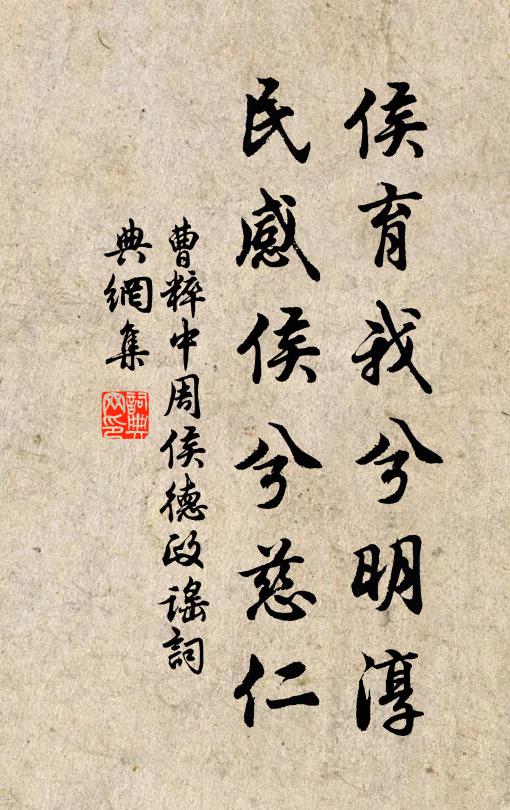 侯育我兮明淳
民感侯兮慈仁
曹粹中周侯德政謡詞
典網集
詞典網印